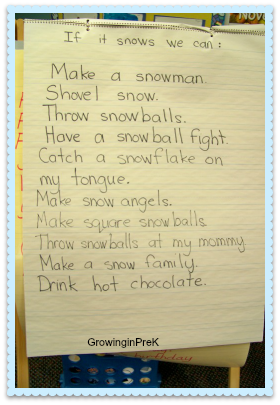 NOVE
If it snows we can:
Make a snowman.
Shovel snow.
Throw snowballs.
Have a snowball fight.
Catch a snowflake on
my tongue.
Make snow angels.
Make square snowballs.
Throw snowballs at my mommy.
Make a snow family.
Drink hot chocolate.
GrowinginPreK
birthday